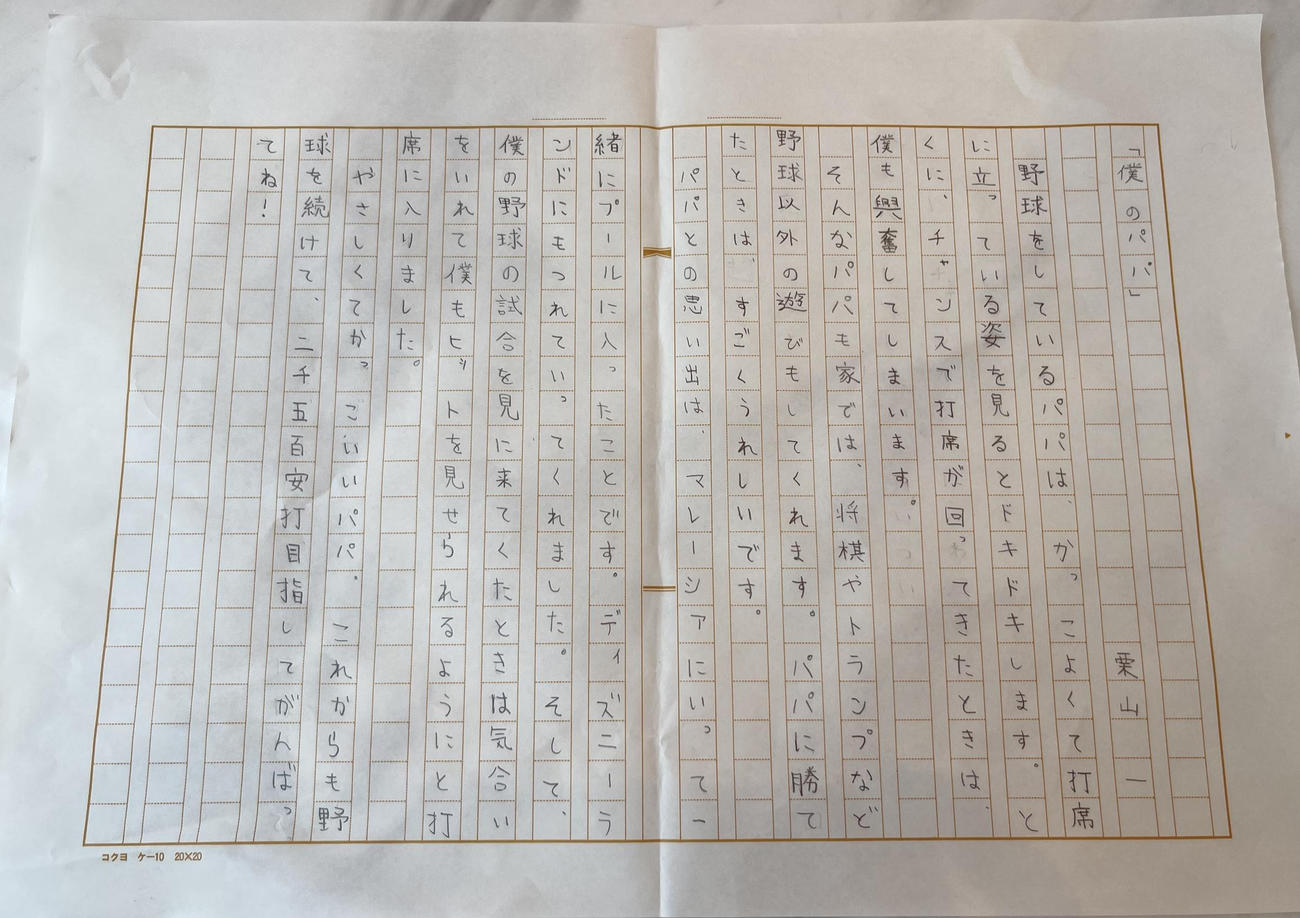 「僕のパパ」
栗山 一
野球をしているパパは、かっこよくて打席
に立っている姿を見るとドキドキします。と
くに、チャンスで打席が回ってきたときは、
僕も興奮してしまいます。
そんなパパも家では、将棋やトランプなど
野球以外の遊びもしてくれます。パパに勝て
たときは、すごくうれしいです。
パパとの思い出は、マレーシアにいって一
緒にプールに入ったことです。ディズニーラ
ンドにもつれていってくれました。そして、
僕の野球の試合を見に来てくたときは気合い
をいれて僕もヒットを見せられるようにと打
席に入りました。
やさしくてかっこいいパパ。これからも野
球を続けて、二千五百安打目指してがんばっ
てね!
コクヨ ケー10 20×20